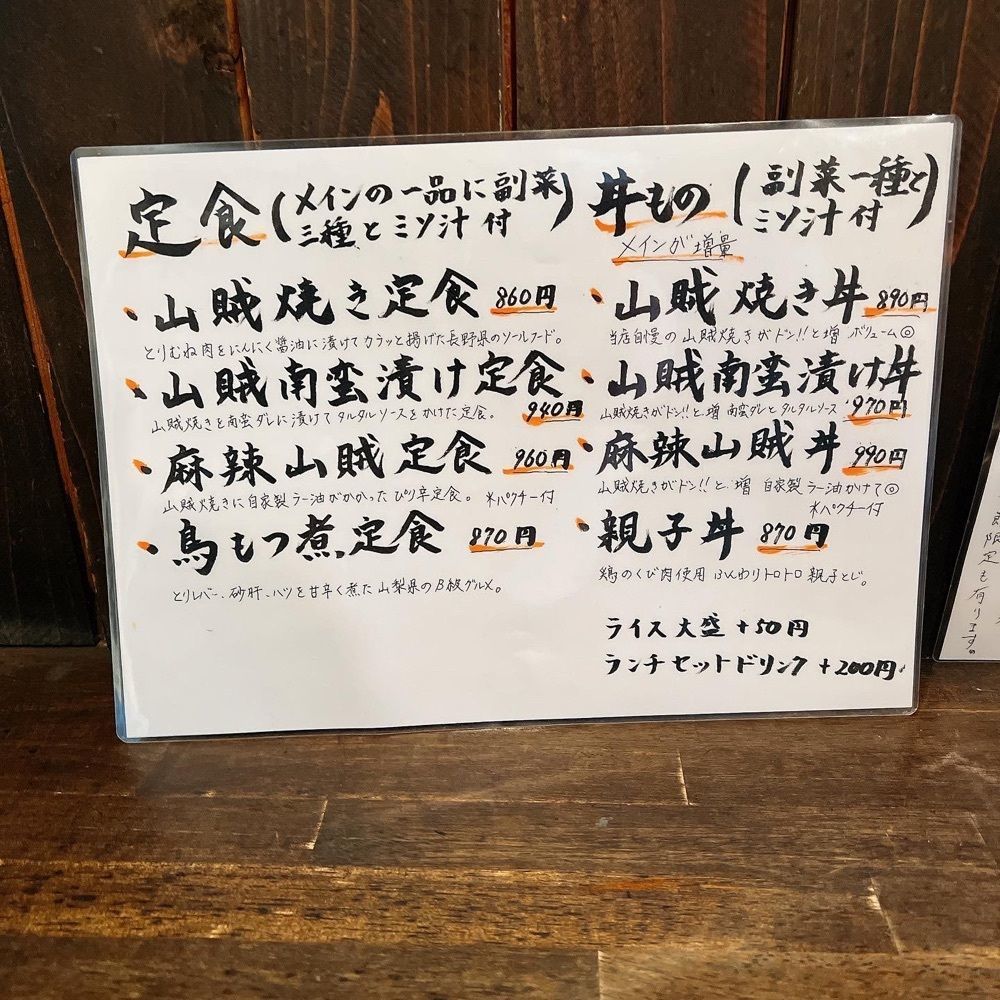 定食(メインの一品に副菜
三種とミソ汁付)
・山賊焼き定食 860円
とりむね肉をにんにく醤油に漬けてカラッと揚げた長野県のソールフード。
・山賊南蛮漬け定食
940円
山賊焼きを南蛮ダレに漬けてタルタルソースをかけた定食。
・麻辣山賊定食 960円
山賊焼きに自家製ラー油がかかったぴり辛定食。 *パクチー付
・鳥もつ煮定食 870円
とりレバー、砂肝、ハツを甘辛く煮た山梨県のB級グルメ。
丼もの(副菜一種と
ミソ汁付)
メインが増量
・山賊焼き丼 890円
当店自慢の山賊焼きがドン!!と増 ボリューム◎
・山賊南蛮漬け丼
山賊焼きがドン!!と増 南蛮ダレとタルタルソース 970円
・麻辣山賊丼 990円
山賊焼きがドン!!と増 自家製ラー油かけて◎
*パクチー付
・親子丼 870円
鶏のくび肉使用 ふんわりトロトロ親子とじ。
ライス大盛 +50円
ランチセットドリンク +200円
限定も有ります。